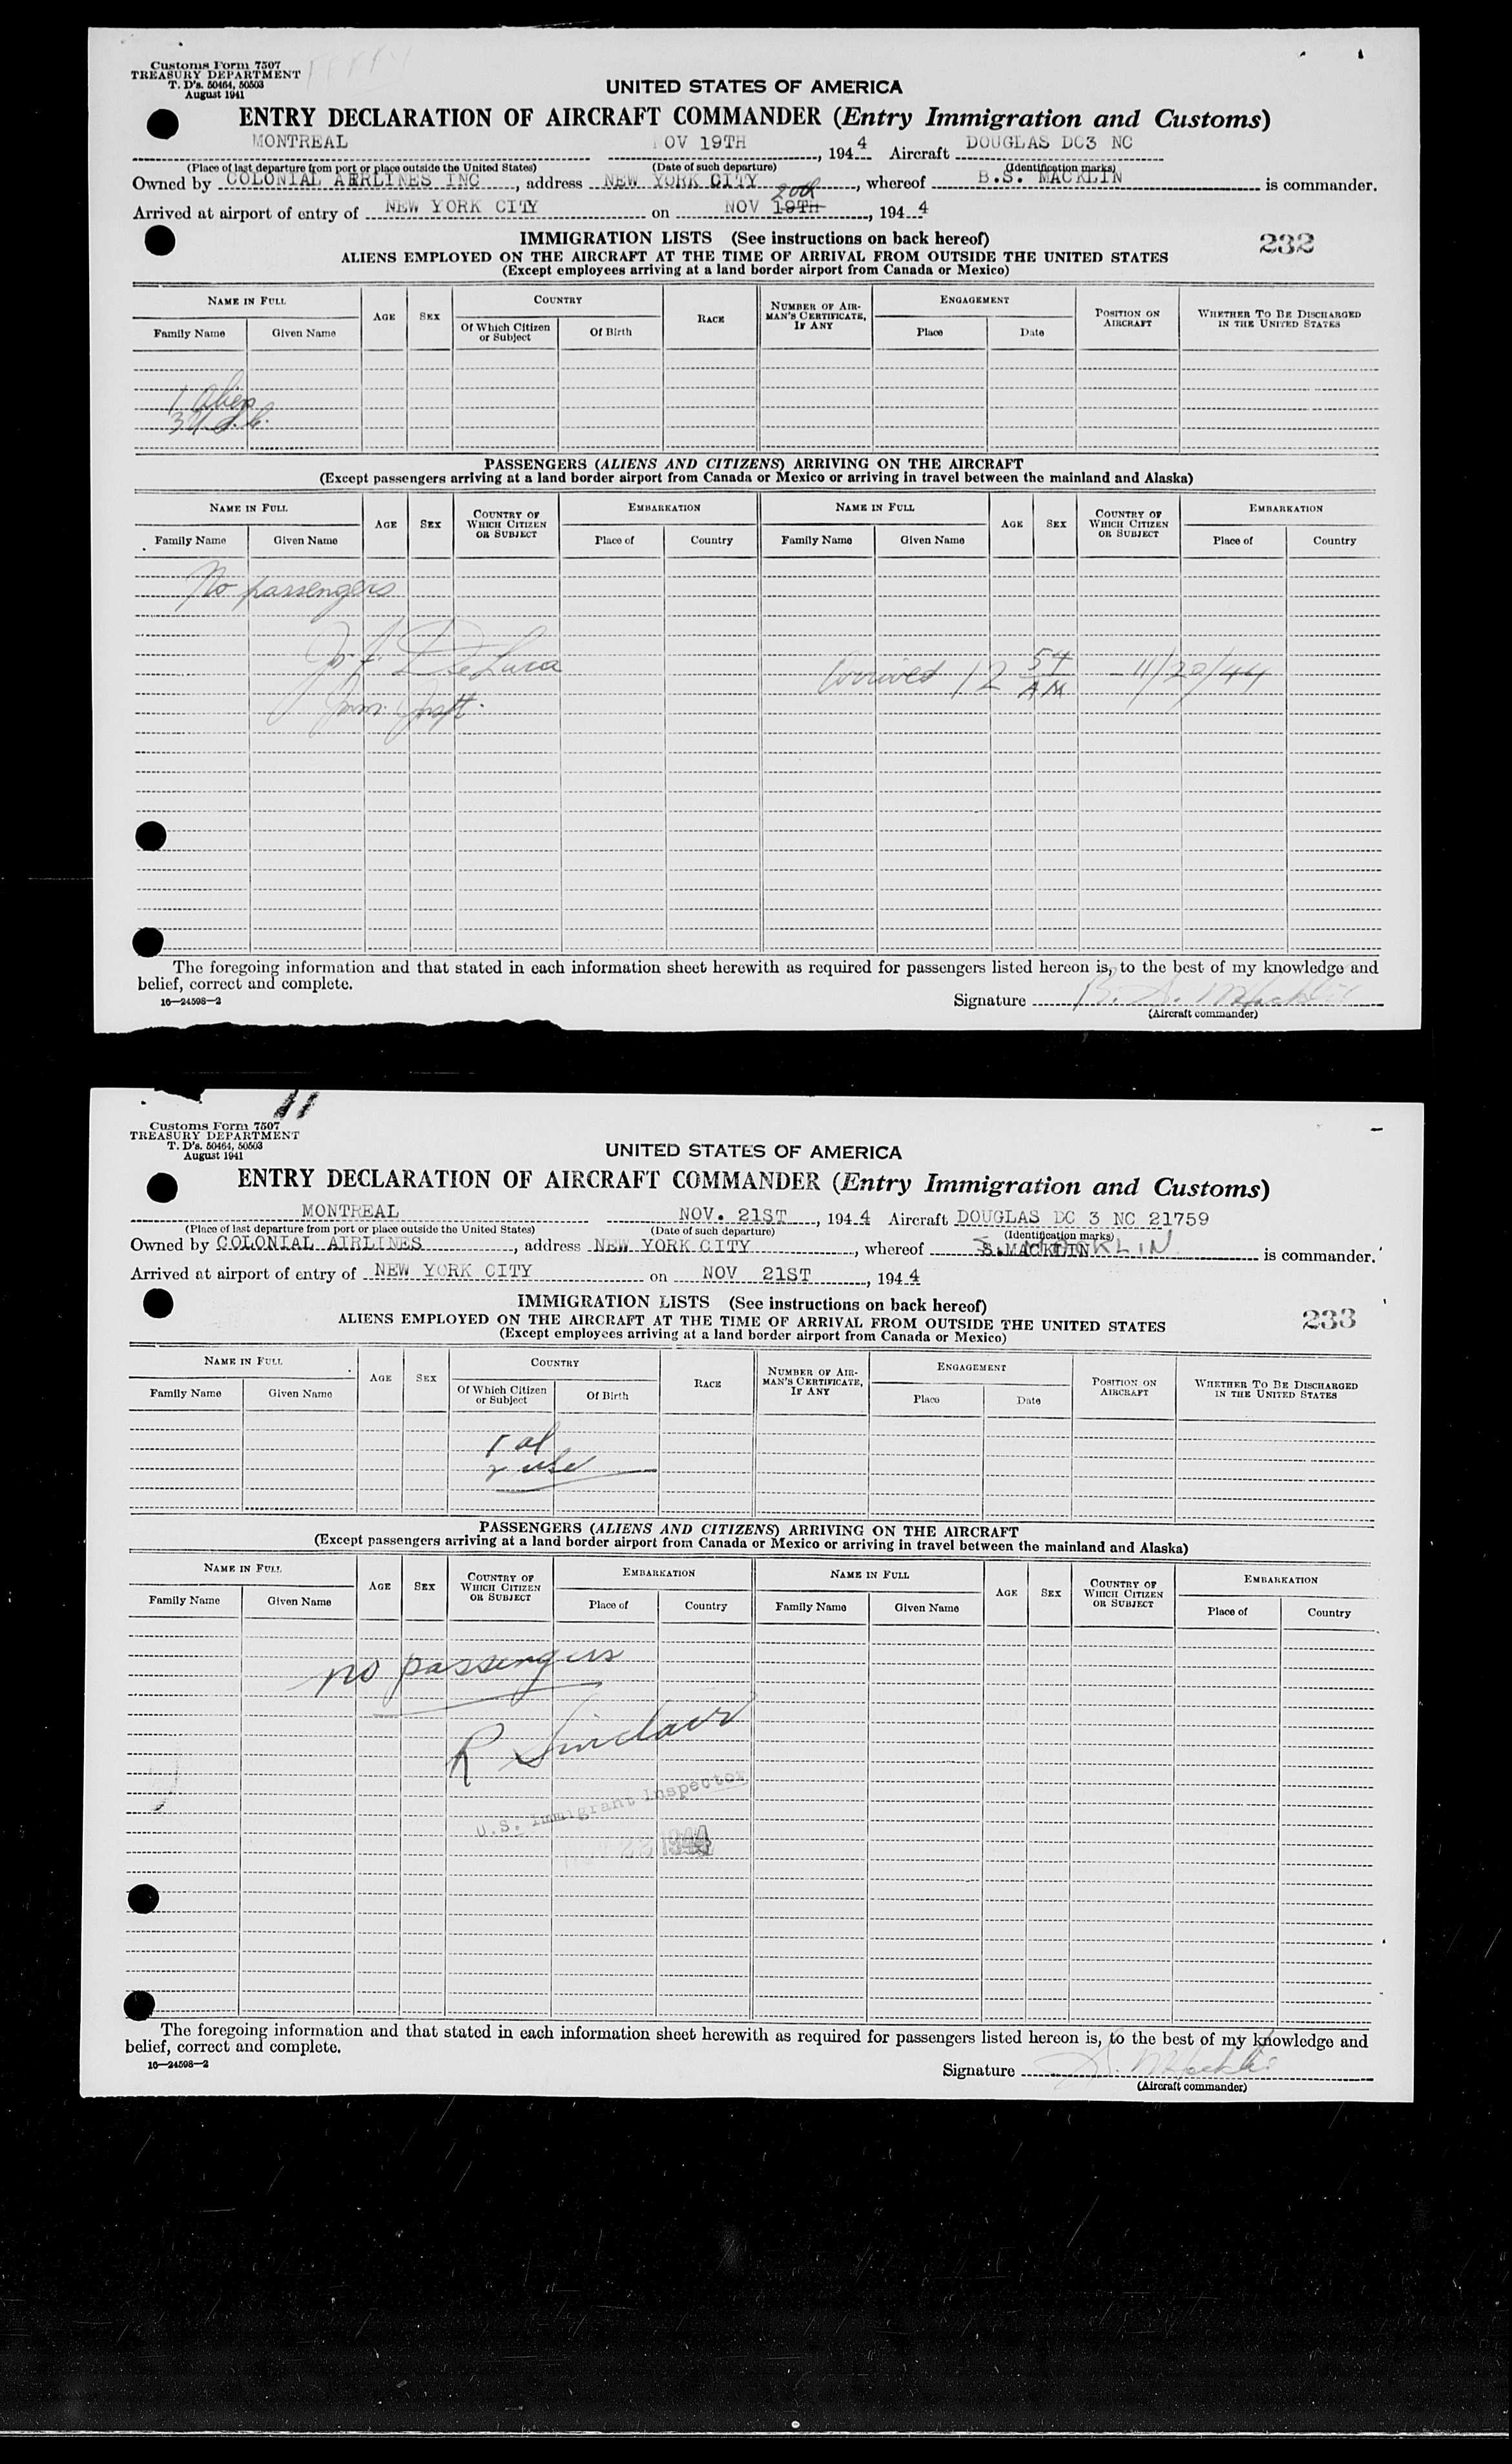 Customs Form 7507
TREASURY DEPARTMENT
T. D's. 50464, 50503
August 1941
UNITED STATES OF AMERICA
ENTRY DECLARATION OF AIRCRAFT COMMANDER (Entry Immigration and Customs)
MONTREAL OV 19TH, 1944 Aircraft DOUGLAS DC3 NC
(Place of last departure from port or place outside the United States) (Date of such departure) (Identification marks)
Owned by COLONIAL AIRLINES INC, address NEW YORK CITY, whereof B.S. MACKLIN is commander.
Arrived at airport of entry of NEW YORK CITY on NOV 19TH 20th, 1944
IMMIGRATION LISTS (See instructions on back hereof) 232
ALIENS EMPLOYED ON THE AIRCRAFT AT THE TIME OF ARRIVAL FROM OUTSIDE THE UNITED STATES
(Except employees arriving at a land border airport from Canada or Mexico)
NAME IN FULL AGE SEX COUNTRY RACE NUMBER OF AIRMAN'S CERTIFICATE, IF ANY ENGAGEMENT POSITION ON AIRCRAFT WHETHER TO BE DISCHARGED IN THE UNITED STATES
Family Name Given Name Of Which Citizen or Subject Of Birth Place Date
1 Alien
3 U.S.C.
PASSENGERS (ALIENS AND CITIZENS) ARRIVING ON THE AIRCRAFT
(Except passengers arriving at a land border airport from Canada or Mexico or arriving in travel between the mainland and Alaska)
NAME IN FULL AGE SEX COUNTRY OF WHICH CITIZEN OR SUBJECT EMBARKATION NAME IN FULL AGE SEX COUNTRY OF WHICH CITIZEN OR SUBJECT EMBARKATION
Family Name Given Name Place of Country Family Name Given Name Place of Country
No passengers
DeLuca Arrived 12 54 AM – 11/20/44
Imm. Inspt.
The foregoing information and that stated in each information sheet herewith as required for passengers listed hereon is, to the best of my knowledge and
belief, correct and complete.
16—24598—2
Signature B. S. Macklin
(Aircraft commander)
11
Customs Form 7507
TREASURY DEPARTMENT
T. D's. 50464, 50503
August 1941
UNITED STATES OF AMERICA
ENTRY DECLARATION OF AIRCRAFT COMMANDER (Entry Immigration and Customs)
MONTREAL NOV. 21ST, 1944 Aircraft DOUGLAS DC 3 NC 21759
(Place of last departure from port or place outside the United States) (Date of such departure) (Identification marks)
Owned by COLONIAL AIRLINES, address NEW YORK CITY, whereof S. MACKLIN is commander.
Arrived at airport of entry of NEW YORK CITY on NOV 21ST, 1944
IMMIGRATION LISTS (See instructions on back hereof) 233
ALIENS EMPLOYED ON THE AIRCRAFT AT THE TIME OF ARRIVAL FROM OUTSIDE THE UNITED STATES
(Except employees arriving at a land border airport from Canada or Mexico)
NAME IN FULL AGE SEX COUNTRY RACE NUMBER OF AIRMAN'S CERTIFICATE, IF ANY ENGAGEMENT POSITION ON AIRCRAFT WHETHER TO BE DISCHARGED IN THE UNITED STATES
Family Name Given Name Of Which Citizen or Subject Of Birth Place Date
1 al
2 usc
PASSENGERS (ALIENS AND CITIZENS) ARRIVING ON THE AIRCRAFT
(Except passengers arriving at a land border airport from Canada or Mexico or arriving in travel between the mainland and Alaska)
NAME IN FULL AGE SEX COUNTRY OF WHICH CITIZEN OR SUBJECT EMBARKATION NAME IN FULL AGE SEX COUNTRY OF WHICH CITIZEN OR SUBJECT EMBARKATION
Family Name Given Name Place of Country Family Name Given Name Place of Country
no passengers
R Sinclair
U.S. Immigrant Inspector
1944
The foregoing information and that stated in each information sheet herewith as required for passengers listed hereon is, to the best of my knowledge and
belief, correct and complete.
16—24598—2
Signature S. Macklin
(Aircraft commander)